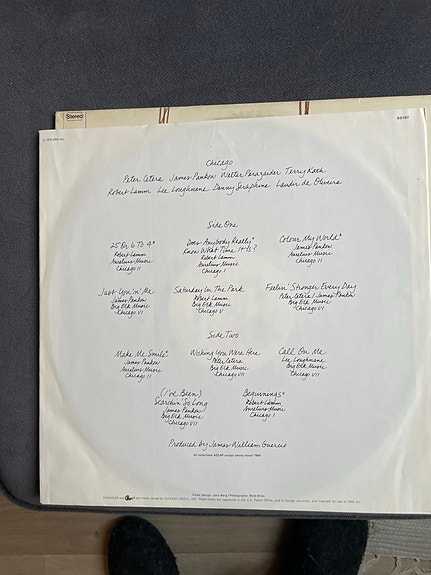 Stereo
69187
© 1975 CBS Inc.
Chicago
Peter Cetera James Pankow Walter Parazaider Terry Kath
Robert Lamm Lee Loughnane Danny Seraphine Laudir de Oliveira
Side One
25 Or 6 To 4*
Robert Lamm
Aurelius Music
Chicago II
Does Anybody Really*
Know What Time It Is?
Robert Lamm
Aurelius Music
Chicago I
Colour My World*
James Pankow
Aurelius Music
Chicago II
Just You 'n' Me
James Pankow
Big Elk Music
Chicago VI
Saturday In The Park
Robert Lamm
Big Elk Music
Chicago V
Feelin' Stronger Every Day
Peter Cetera / James Pankow
Big Elk Music
Chicago VI
Side Two
Make Me Smile*
James Pankow
Aurelius Music
Chicago II
Wishing You Were Here
Peter Cetera
Big Elk Music
Chicago VII
Call On Me
Lee Loughnane
Big Elk Music
Chicago VII
(I've Been)
Searchin' So Long
James Pankow
Big Elk Music
Chicago VII
Beginnings*
Robert Lamm
Aurelius Music
Chicago I
Produced by James William Guercio
All selections ASCAP except where noted *BMI
Cover design: John Berg / Photography: Nick Fasciano